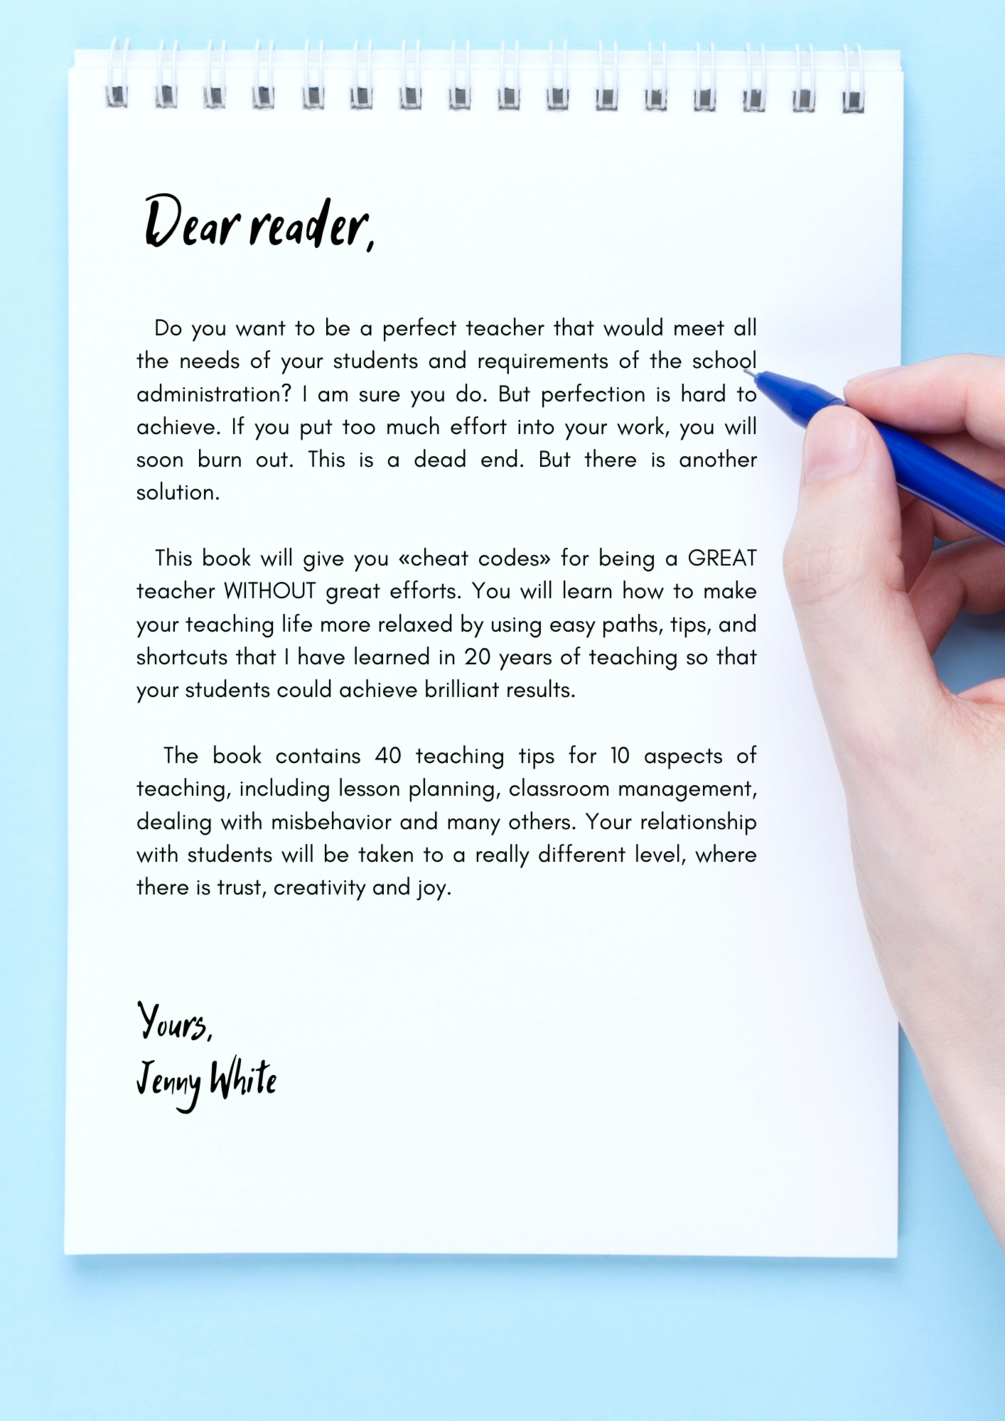 Dear reader,
Do you want to be a perfect teacher that would meet all
the needs of your students and requirements of the school
administration? I am sure you do. But perfection is hard to
achieve. If you put too much effort into your work, you will
soon burn out. This is a dead end. But there is another
solution.
This book will give you «cheat codes» for being a GREAT
teacher WITHOUT great efforts. You will learn how to make
your teaching life more relaxed by using easy paths, tips, and
shortcuts that I have learned in 20 years of teaching so that
your students could achieve brilliant results.
The book contains 40 teaching tips for 10 aspects of
teaching, including lesson planning, classroom management,
dealing with misbehavior and many others. Your relationship
with students will be taken to a really different level, where
there is trust, creativity and joy.
Yours,
Jenny White